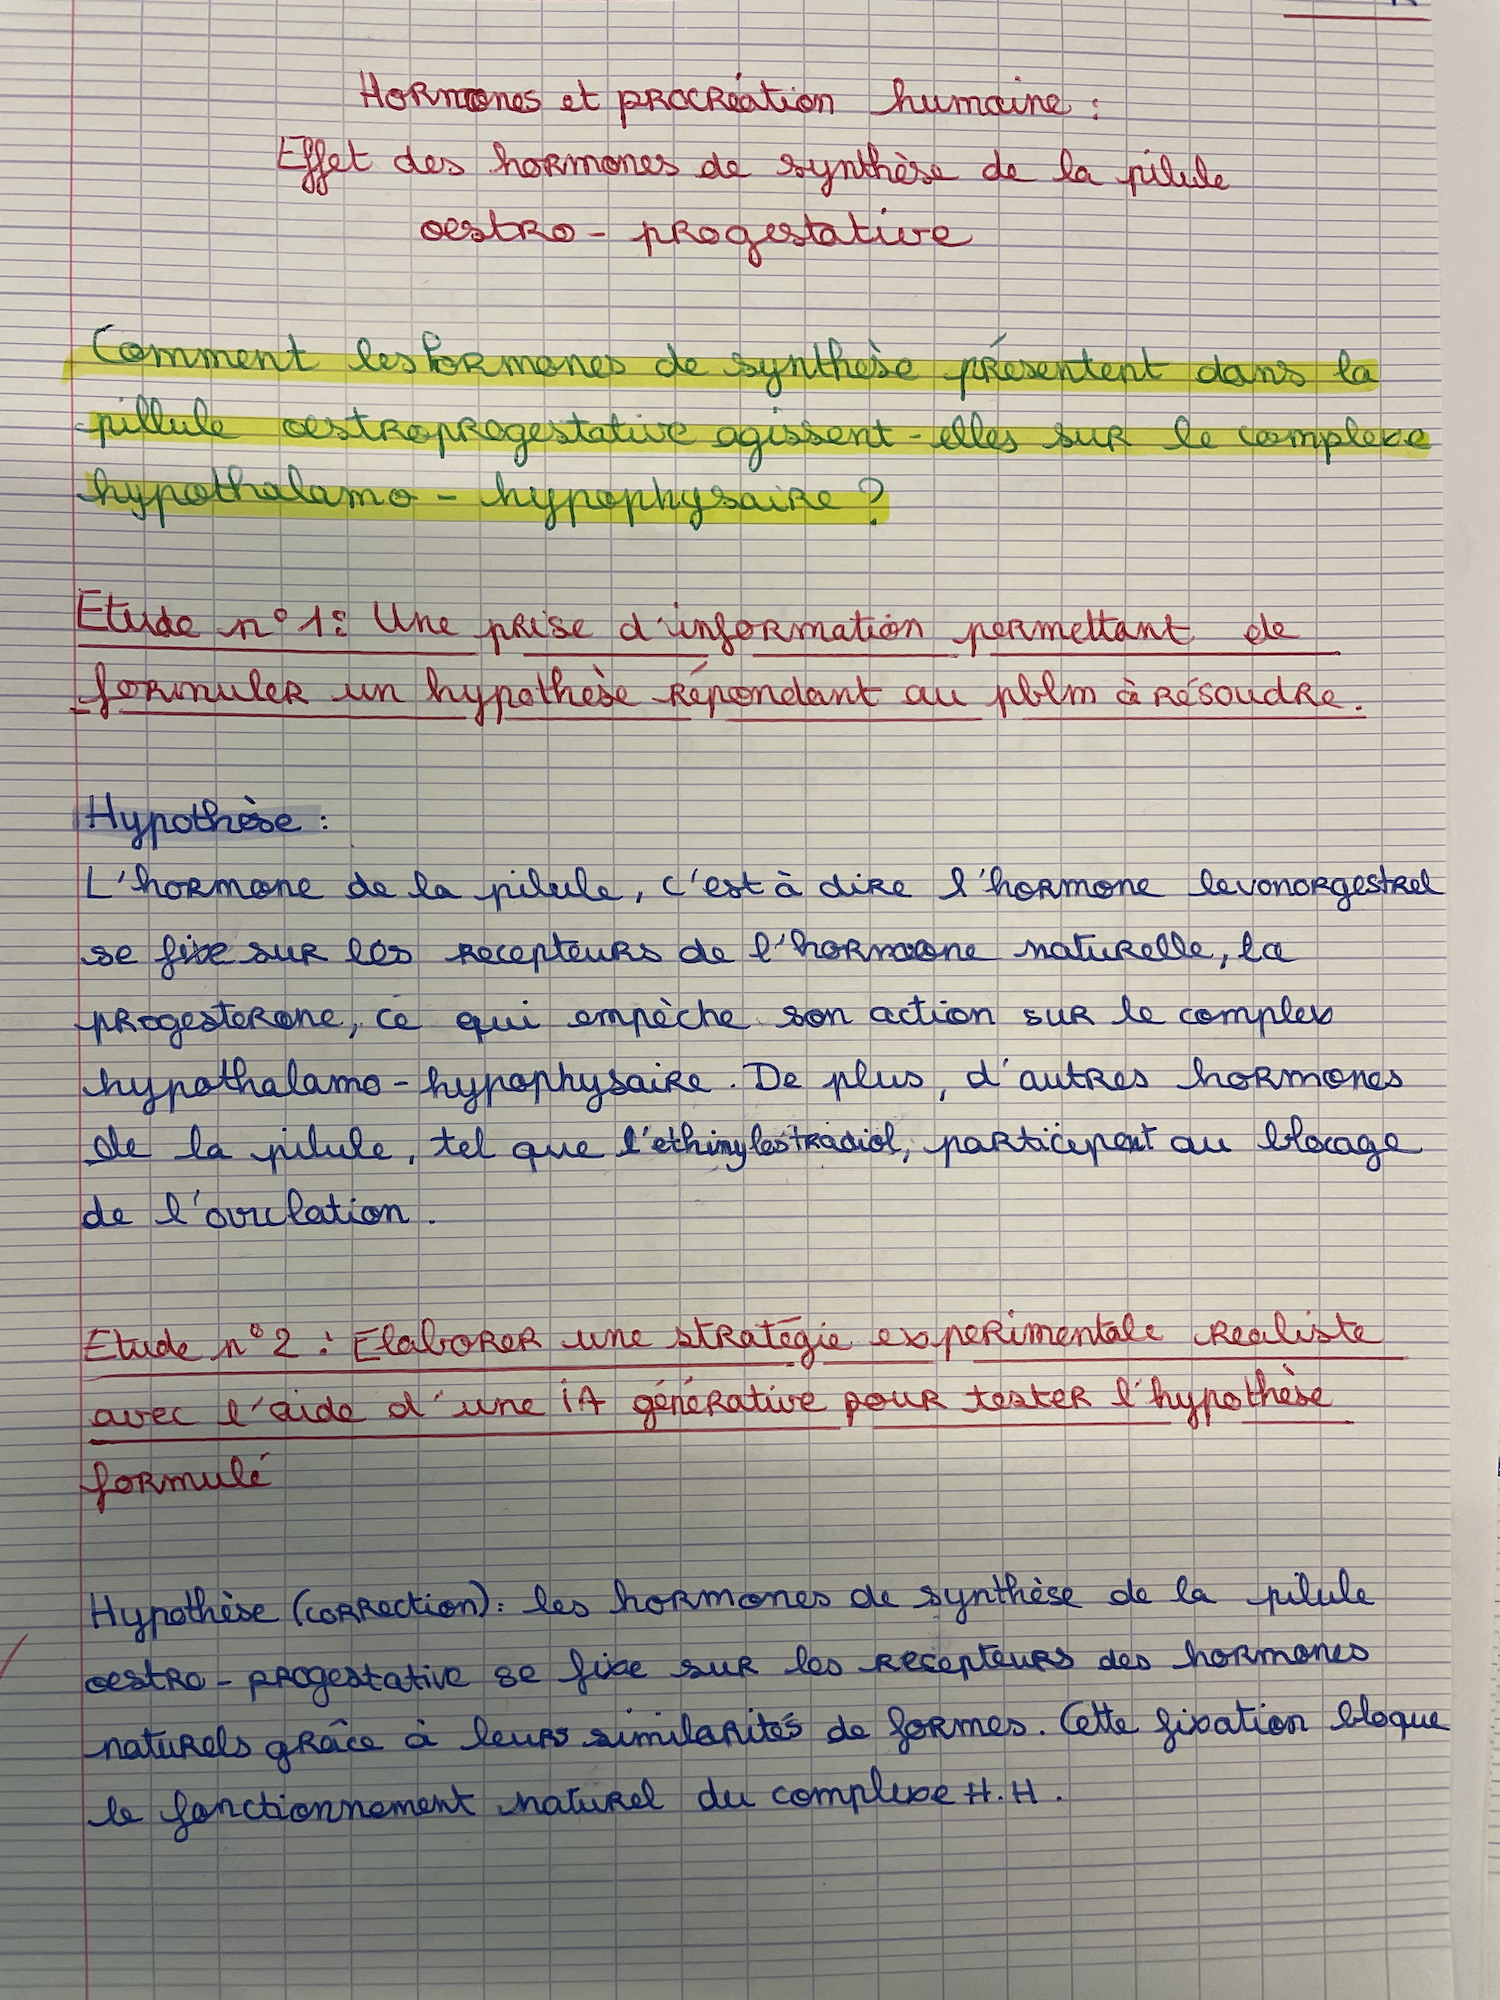 Hormones et procréation humaine :
Effet des hormones de synthèse de la pilule
oestro - progestative
Comment les hormones de synthèse présentent dans la
pillule oestroprogestative agissent-elles sur le complexe
hypothalamo - hypophysaire ?
Etude n° 1 : Une prise d'information permettant de
formuler un hypothèse répondant au pblm à résoudre.
Hypothèse :
L'hormone de la pilule, c'est à dire l'hormone levonorgestrel
se fixe sur les recepteurs de l'hormone naturelle, la
progesterone, ce qui empèche son action sur le complex
hypothalamo - hypophysaire. De plus, d'autres hormones
de la pilule, tel que l'ethinylestradiol, participent au blocage
de l'ovulation.
Etude n° 2 : Elaborer une stratégie experimentale realiste
avec l'aide d'une iA générative pour tester l'hypothèse
formulé
Hypothèse (correction) : les hormones de synthèse de la pilule
oestro - progestative se fixe sur les recepteurs des hormones
naturels grâce à leurs similarités de formes. Cette fixation bloque
le fonctionnement naturel du complexe H.H.